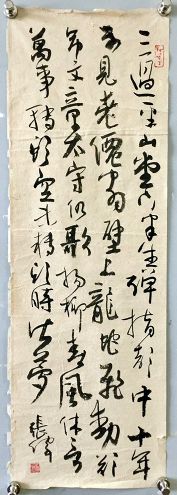 三過平山堂下半生彈指聲中十年
不見老僊翁壁上龍蛇飛動欲
吊文章太守仍歌楊柳春風休言
萬事轉頭空未轉頭時皆夢